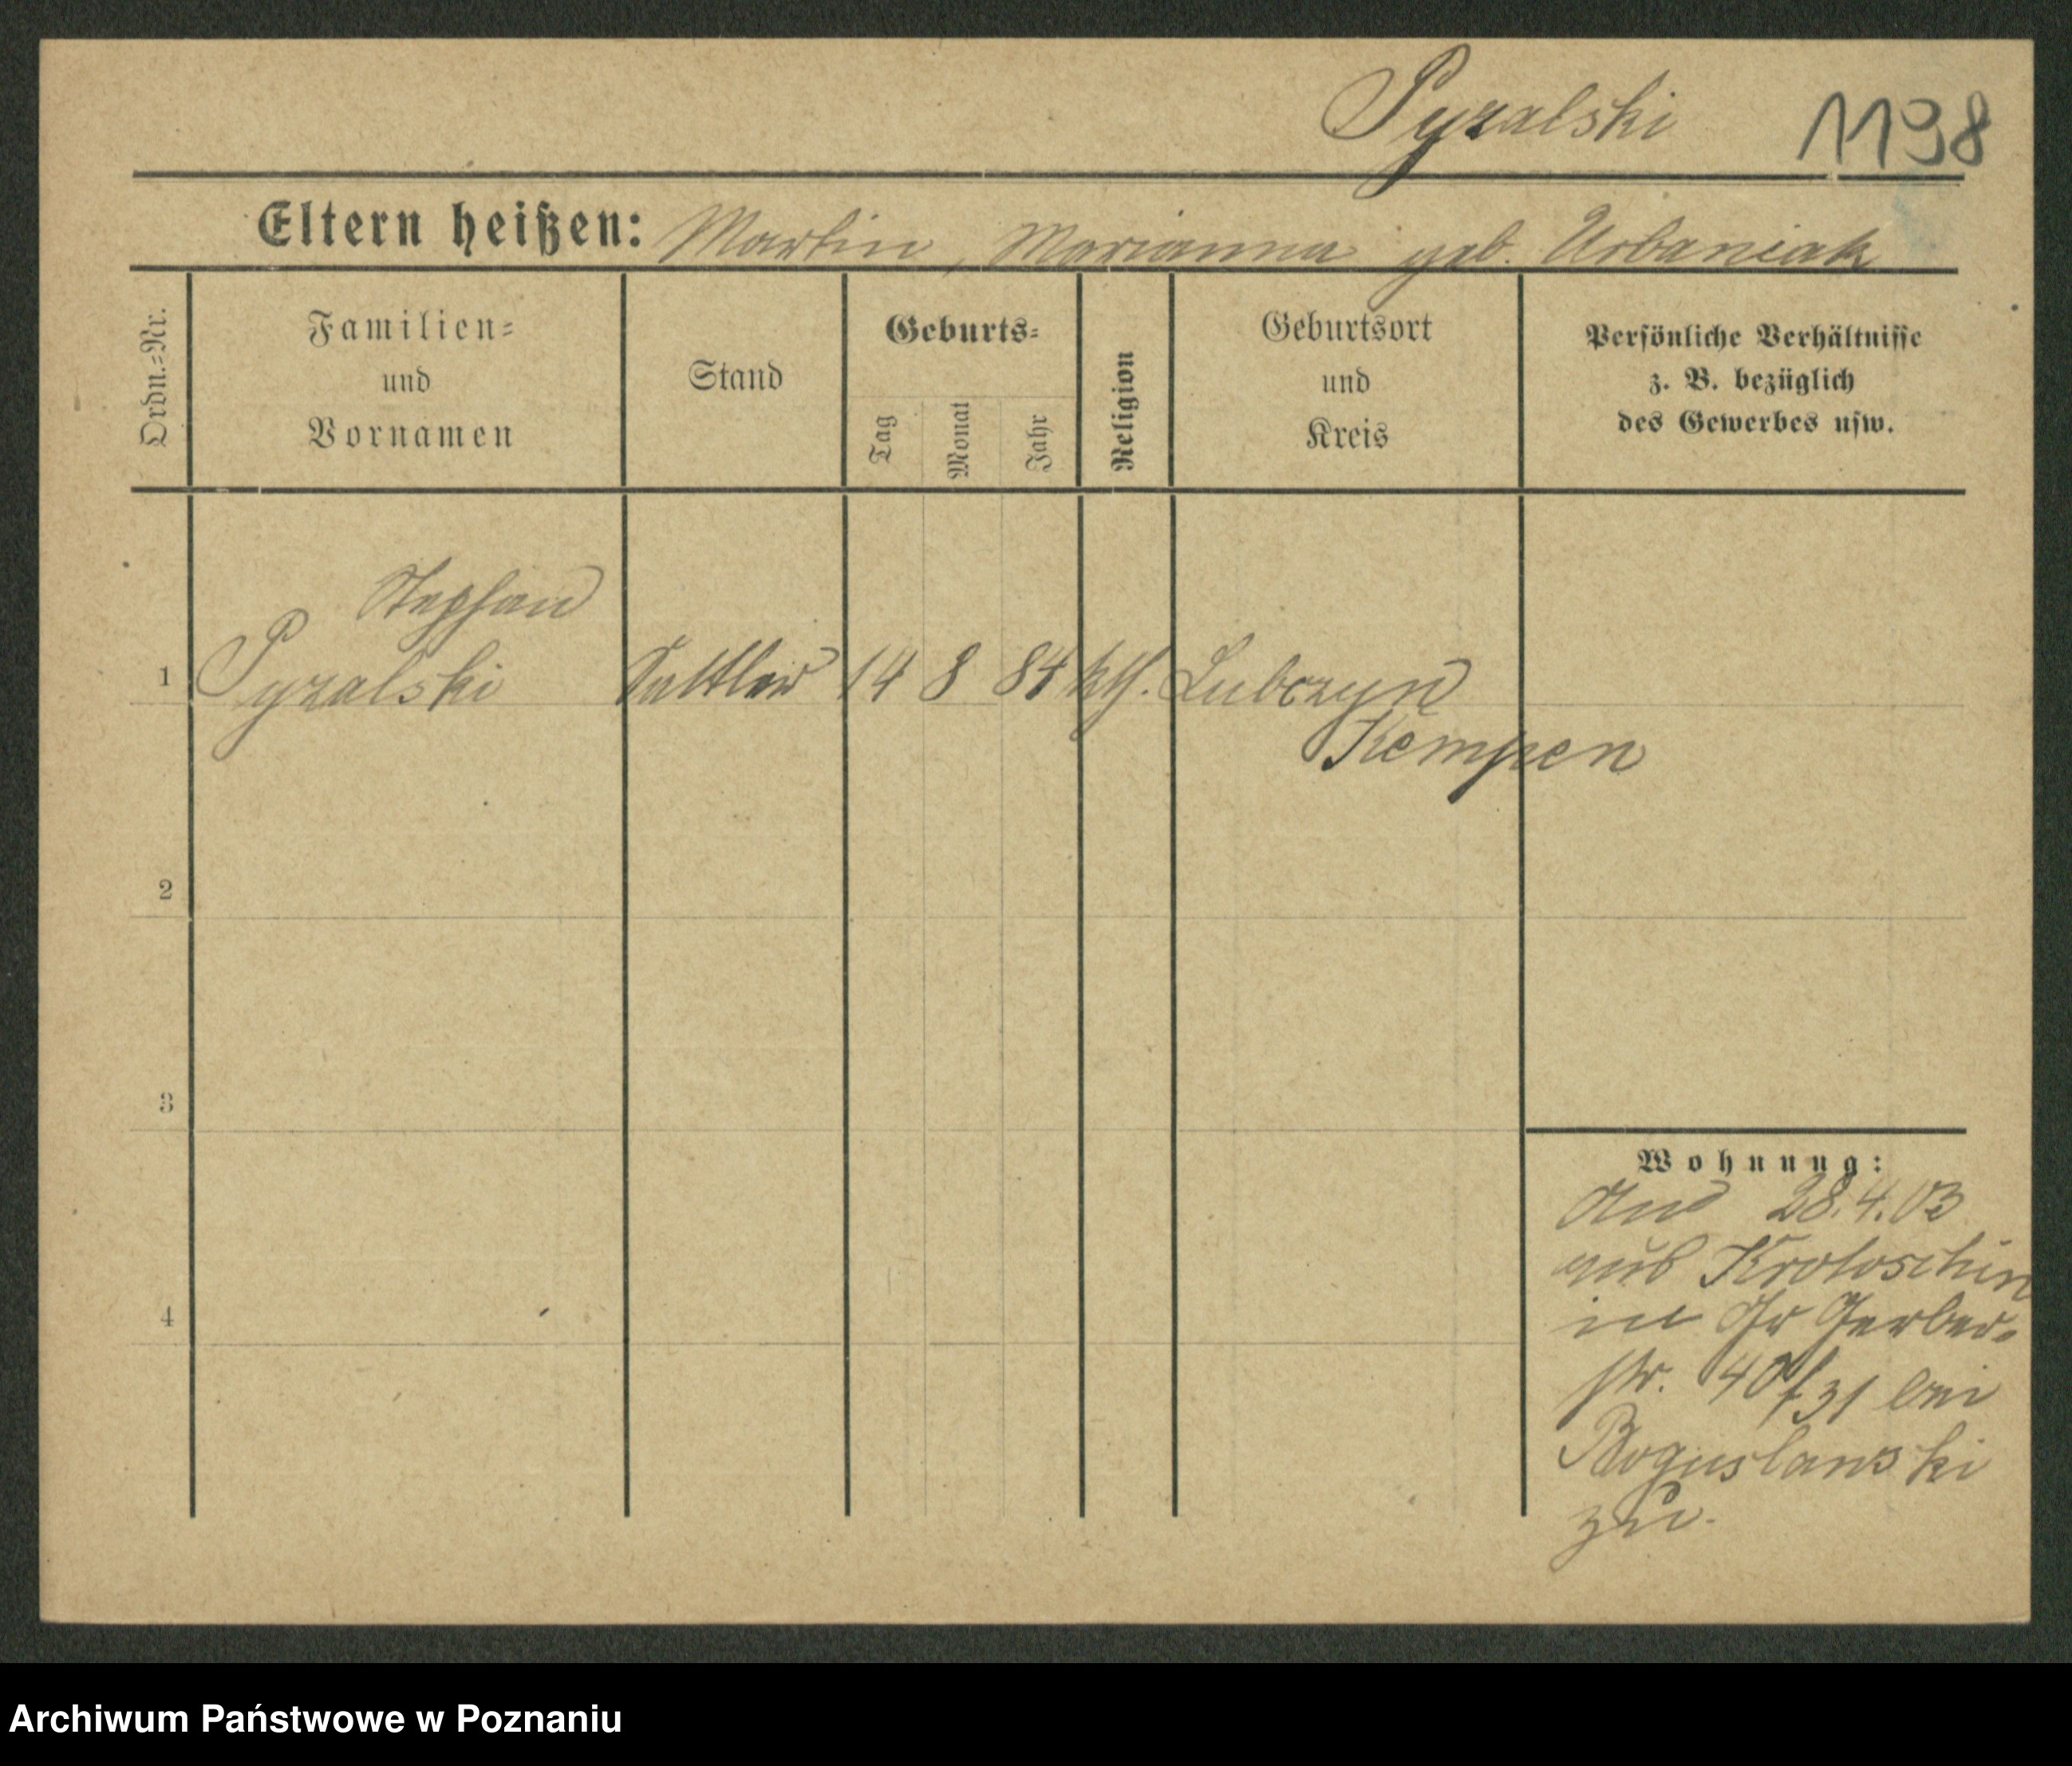 Pyzalski 1198
Eltern heißen: Martin, Marianna geb. Urbaniak
Ordn.=Nr.
Familien=
und
Vornamen
Stand
Geburts=
Tag
Monat
Jahr
Religion
Geburtsort
und
Kreis
Persönliche Verhältnisse
z. B. bezüglich
des Gewerbes usw.
Stephan
1 Pyzalski Sattler 14 8 84 kth. Lubczyn
Kempen
2
3
4
Wohnung:
28.4.03
aus Krotoschin
in Gr Gerber-
str. 40 bei
Boguslawski
zu.
Archiwum Państwowe w Poznaniu